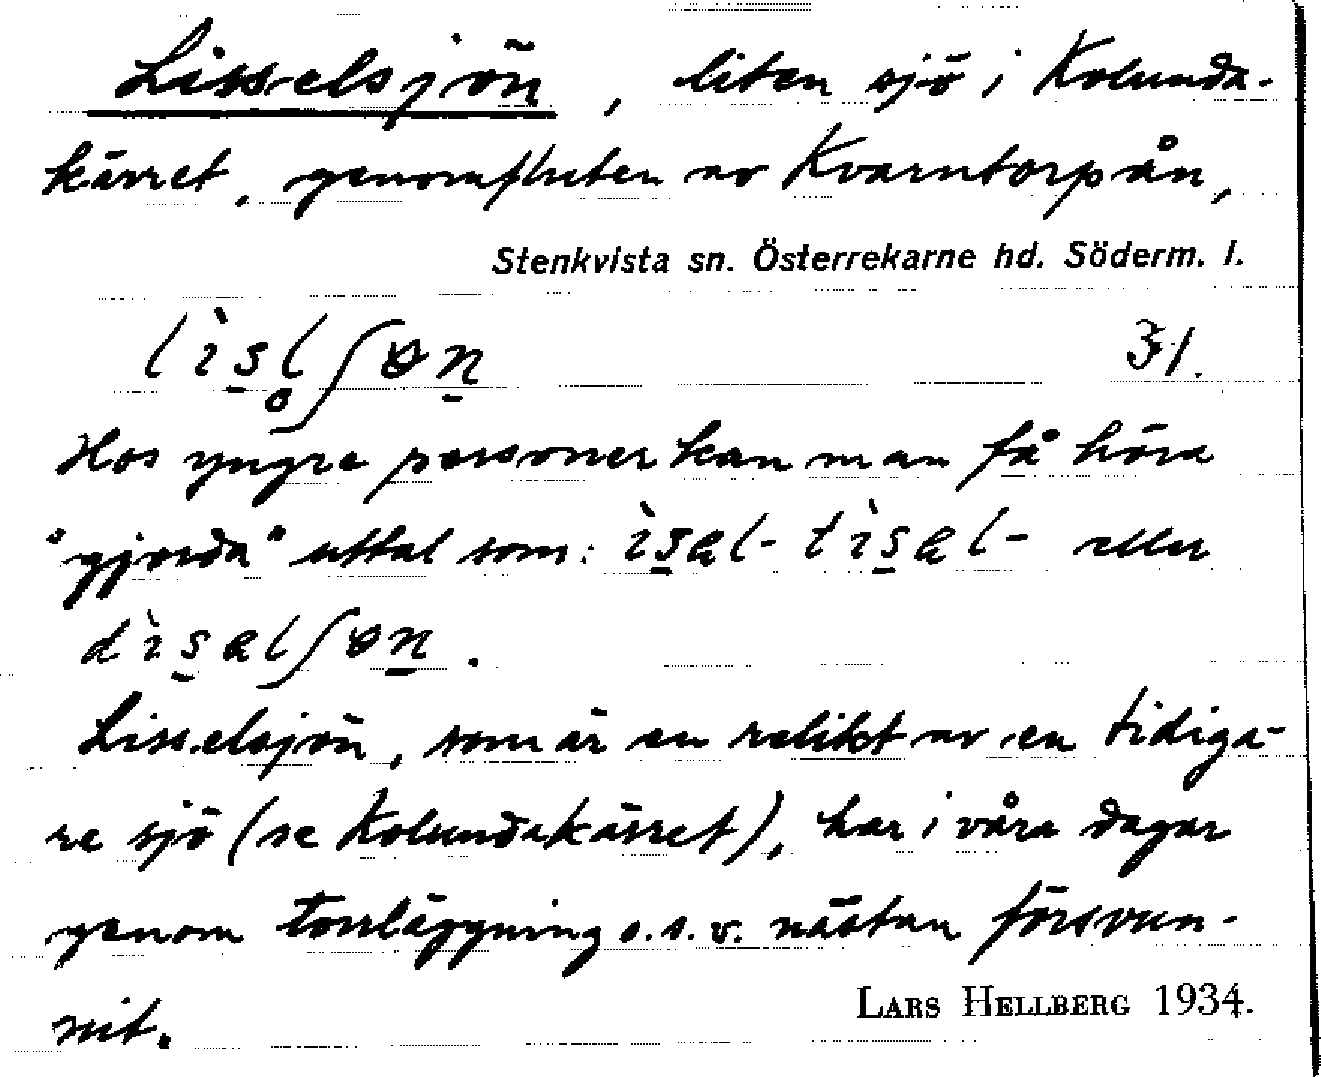 Lisselsjön, liten sjö i Kolunda-
kärret, genomfluten av Kvarntorpån,
Stenkvista sn. Österrekarne hd. Söderm. l.
lìsl̥ʃɵn 31.
Hos yngre personer kan man få höra
"gjorda" uttal som: ìsəl- tìsəl- eller
dìsəlʃɵn.
Lisselsjön, som är en relikt av en tidiga-
re sjö (se Kolundakärret), har i våra dagar
genom torrläggning o.s.v. nästan försvun-
nit.
LARS HELLBERG 1934.